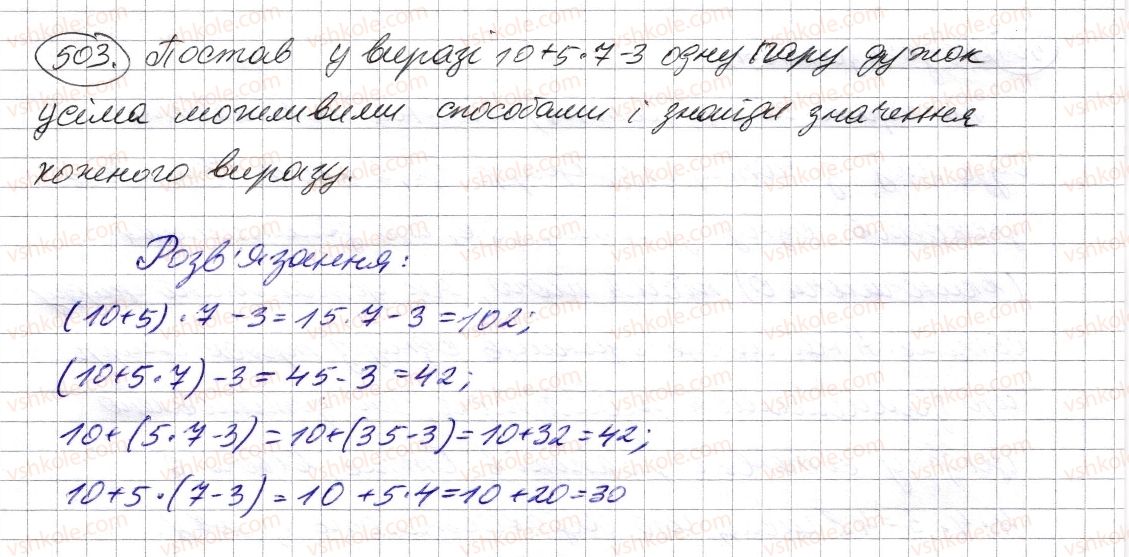 503. Постав у виразі 10+5·7-3 одну пару дужок
усіма можливими способами і знайди значення
кожного виразу.
Розв'язання:
(10+5)·7-3=15·7-3=102;
(10+5·7)-3=45-3=42;
10+(5·7-3)=10+(35-3)=10+32=42;
10+5·(7-3)=10+5·4=10+20=30